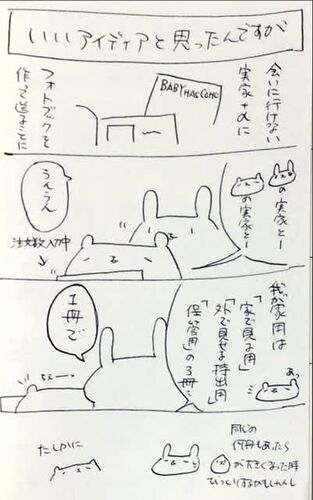 いいアイディアと思ったんですが
会いに行けない
実家+αに
フォトブックを
作って送ることに
BABY HAS COME
の実家とー
の実家とー
うんうん
注文数入力中
我が家用は
「家で見る用」
「外で見せる持出用」
「保管用」の3冊…
あっ
1冊で
たしかに
同じの
何冊もあったら
が大きくなった時
びっくりするかもしれんし